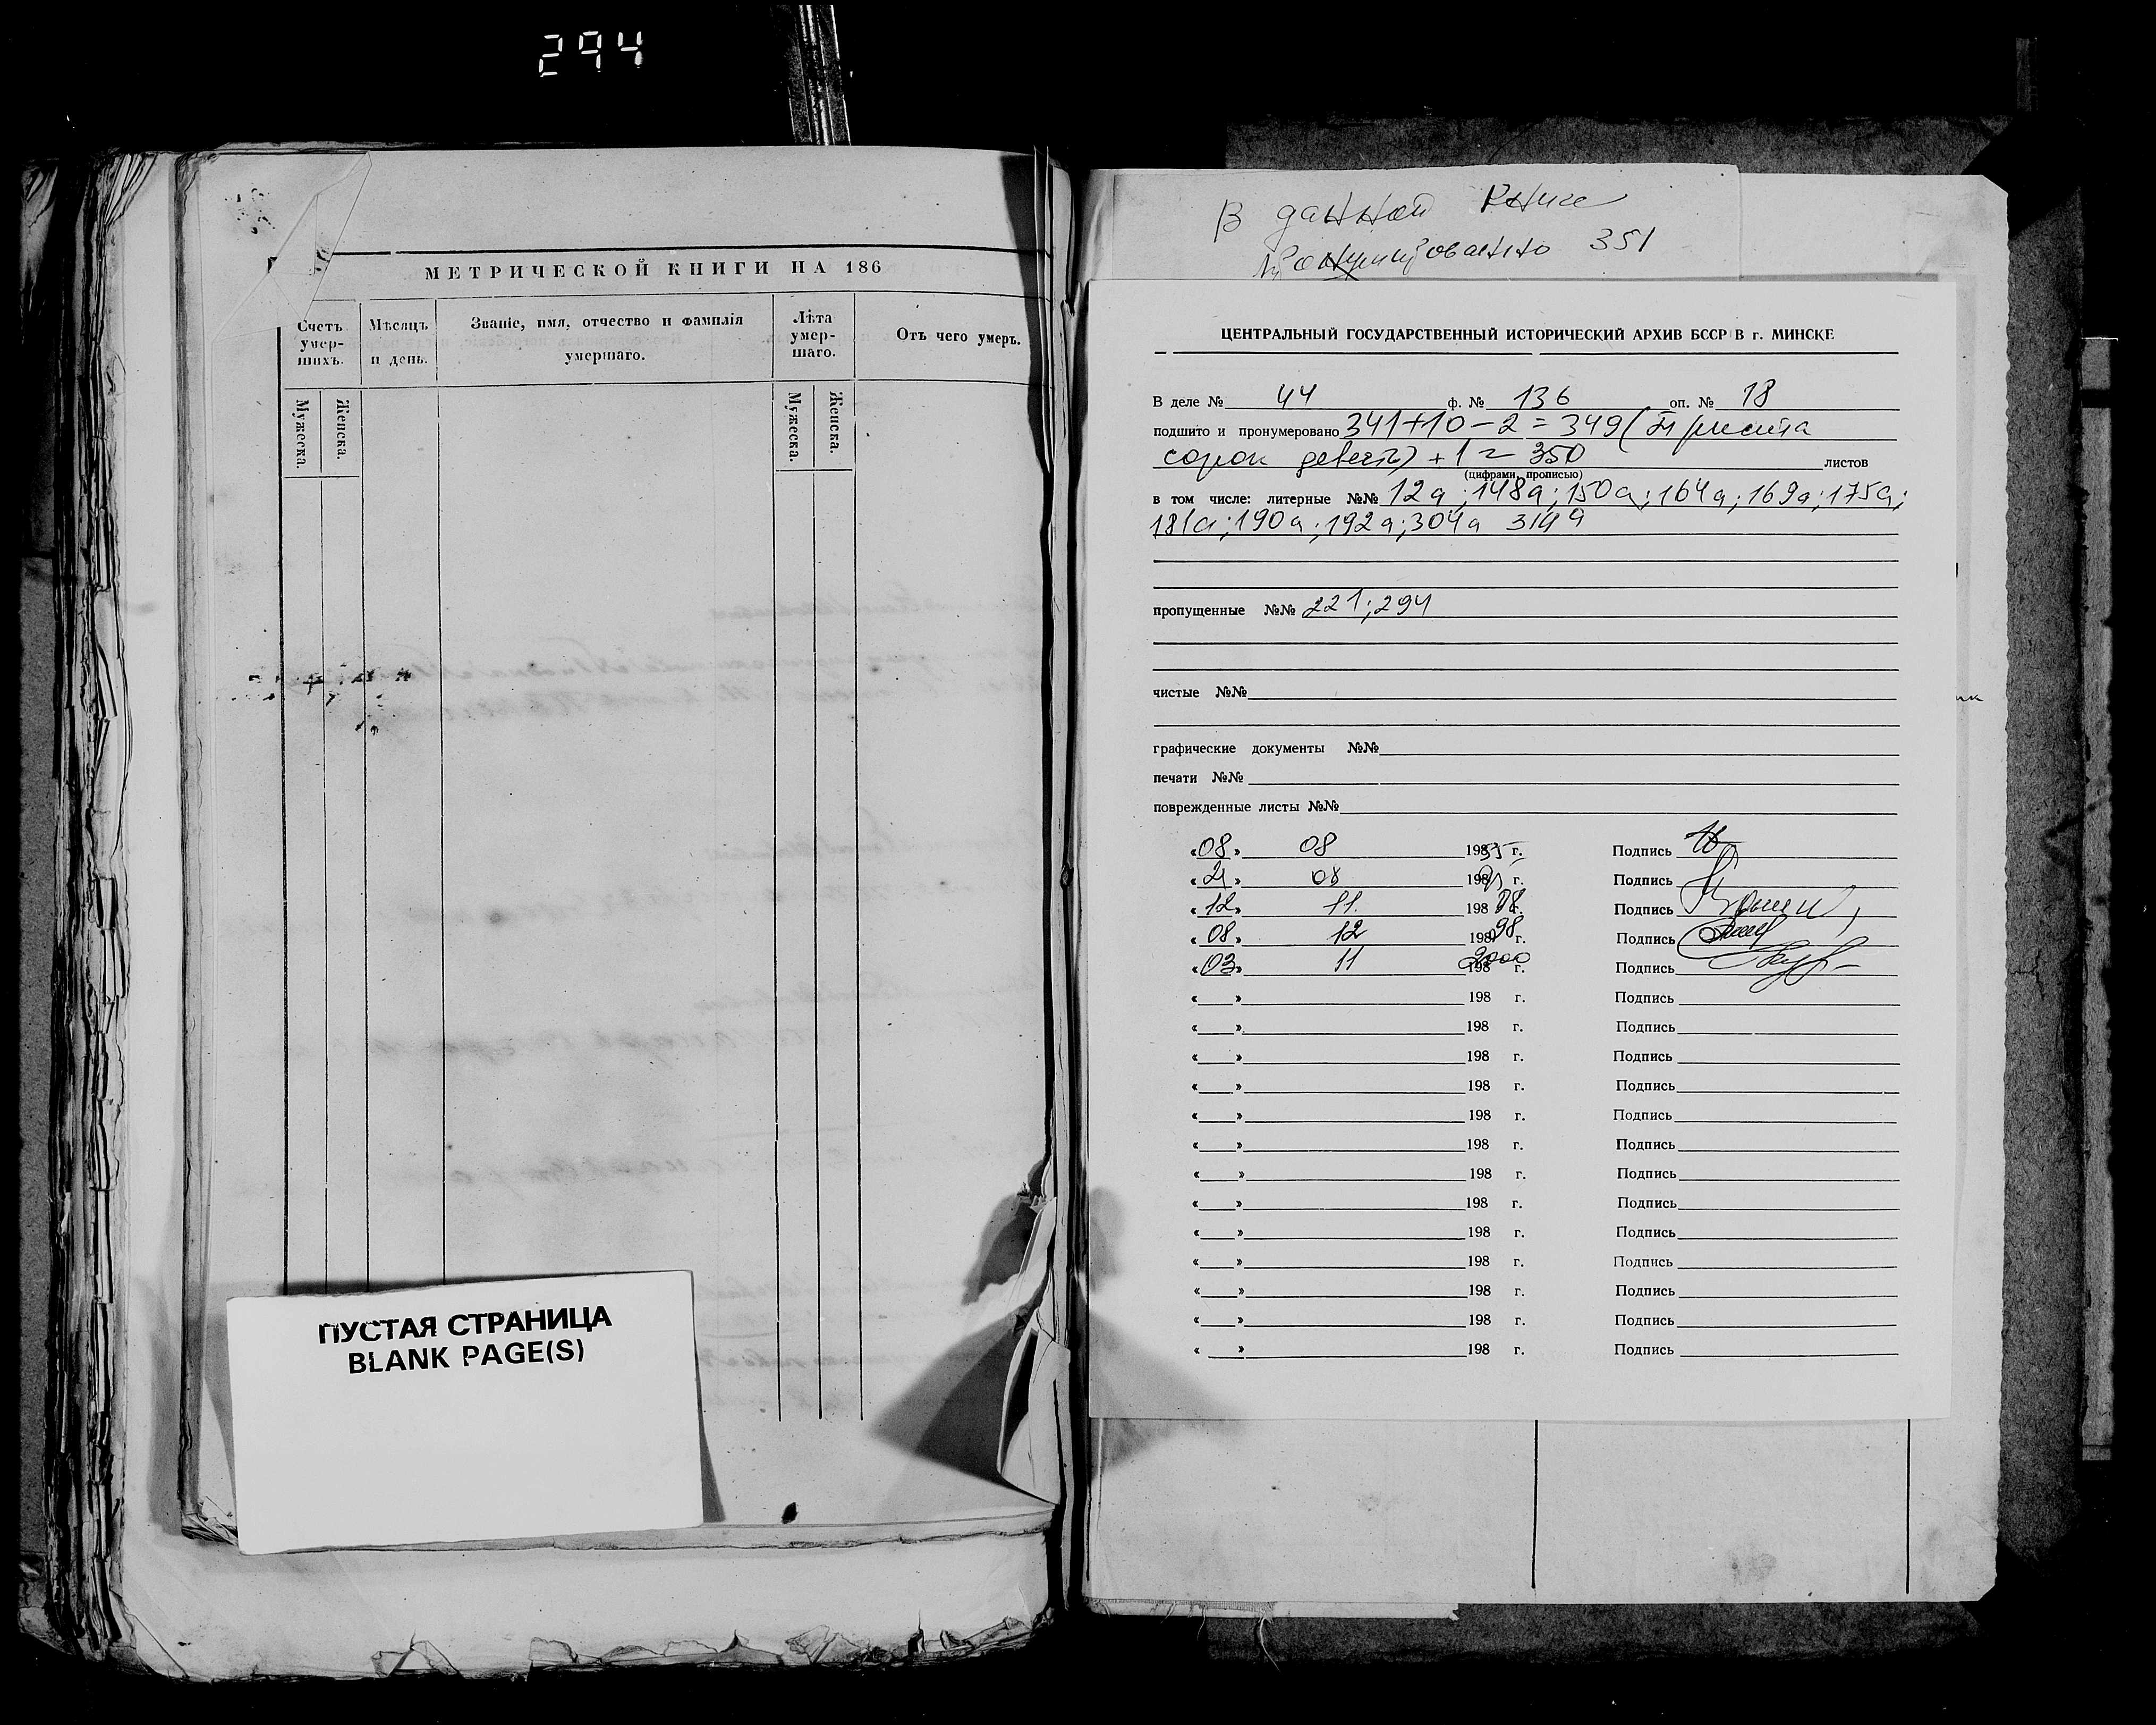 294
МЕТРИЧЕСКОЙ КНИГИ НА 186
Счетъ умер-шихъ.
Мѣсяцъ и день.
Званіе, имя, отчество и фамилія умершаго.
Лѣта умер-шаго.
Отъ чего умеръ.
Мужеска.
Женска.
Мужеска.
Женска.
ПУСТАЯ СТРАНИЦА
BLANK PAGE(S)
В данной книге
351
ЦЕНТРАЛЬНЫЙ ГОСУДАРСТВЕННЫЙ ИСТОРИЧЕСКИЙ АРХИВ БССР В г. МИНСКЕ
В деле № 44 ф. № 136 оп. № 18
подшито и пронумеровано 341+10-2=349 (Триста
сорок девять) +1=350 листов
(цифрами, прописью)
в том числе: литерные №№ 12а; 148а; 150а; 164а; 169а; 175а;
181а; 190а; 192а; 304а 314а
пропущенные №№ 221; 294
чистые №№
графические документы №№
печати №№
поврежденные листы №№
«08» 08 198 г. Подпись
«21» 08 198 г. Подпись
«12» 11. 198 г. Подпись
«08» 12 198 98 г. Подпись
«03» 11 198 2000 г. Подпись
« » 198 г. Подпись
« » 198 г. Подпись
« » 198 г. Подпись
« » 198 г. Подпись
« » 198 г. Подпись
« » 198 г. Подпись
« » 198 г. Подпись
« » 198 г. Подпись
« » 198 г. Подпись
« » 198 г. Подпись
« » 198 г. Подпись
« » 198 г. Подпись
« » 198 г. Подпись